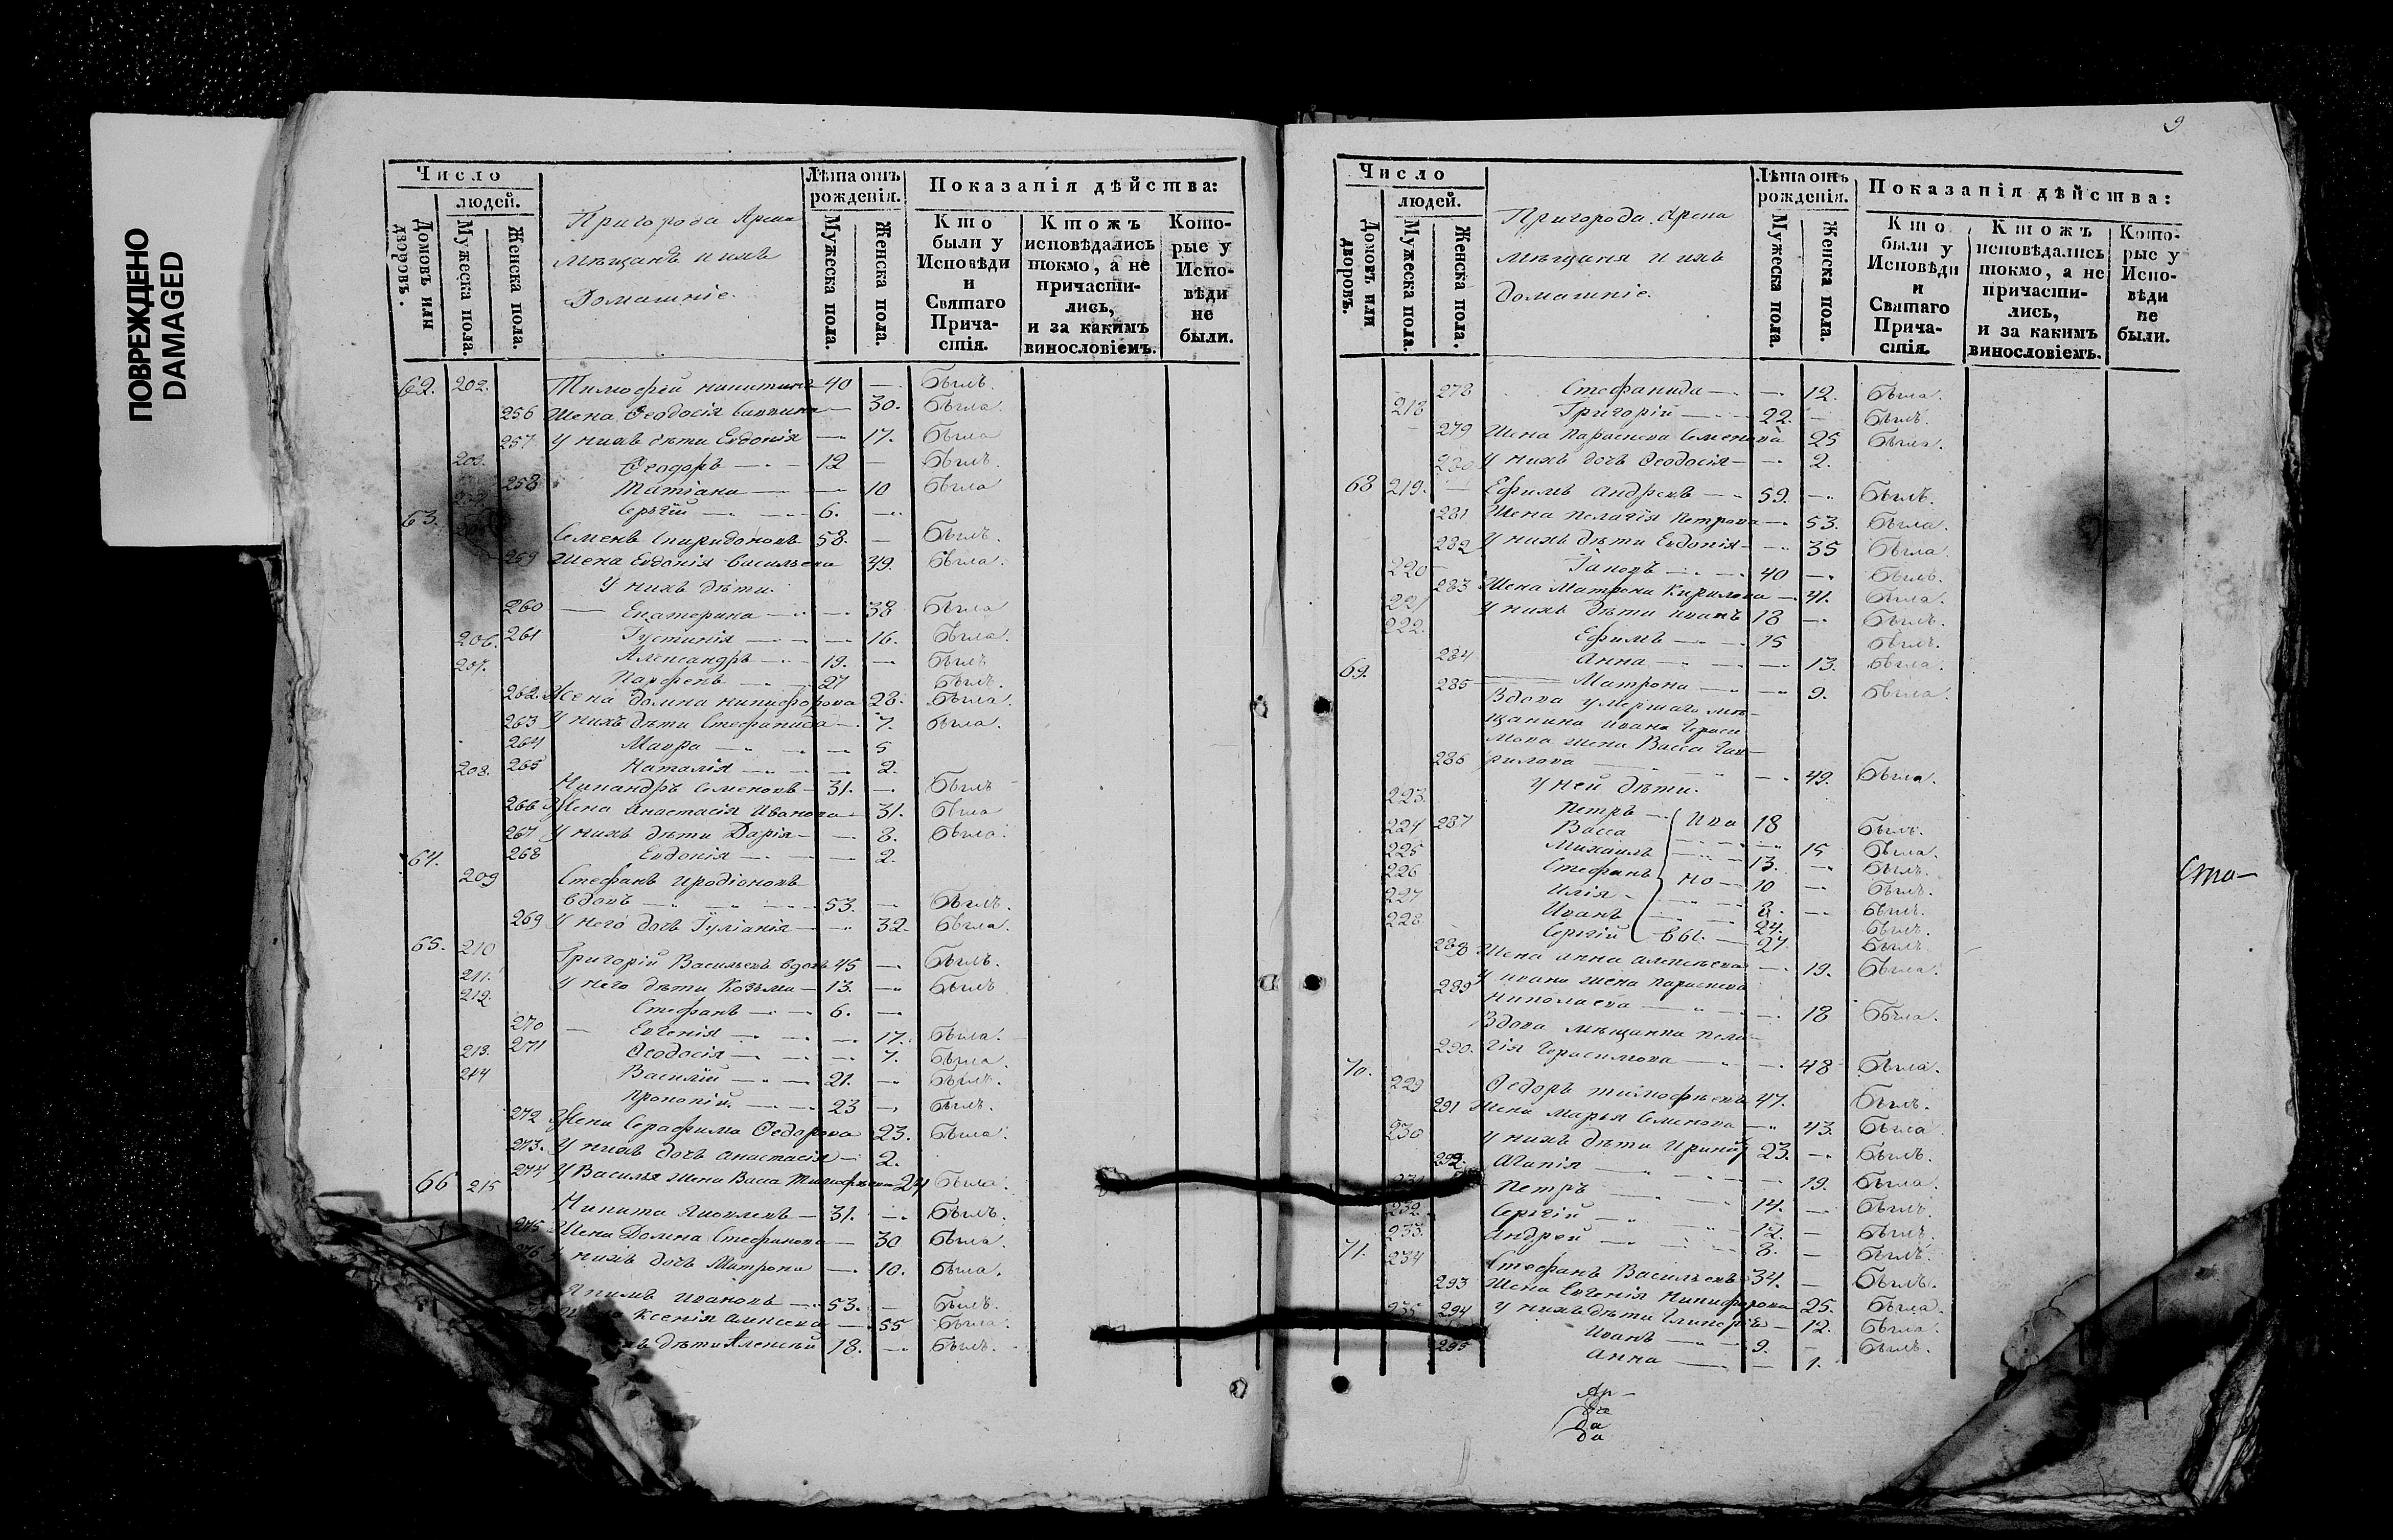 ПОВРЕЖДЕНО
DAMAGED
Число
людей.
Домовъ или дворовъ.
Мужеска пола.
Женска пола.
Пригорода Арска
Мѣщанъ и ихъ
Домашніе.
Лѣта отъ рожденія.
Мужеска пола.
Женска пола.
Показанія дѣйства:
Кто были у Исповѣди и Святаго Причастія.
Ктожъ исповѣдались токмо, а не причастились, и за какимъ винословіемъ.
Которые у Исповѣди не были.
62. 202. Тимофей Никитинъ 40 — Былъ.
256 Жена Ѳеодосія — 30. Была.
257 У нихъ дѣти Евдокія — 17. Была
203. Ѳеодоръ — 12 — Былъ.
258 Татіана — 10 Была
Сергій — 6. —
63. Семенъ Спиридоновъ 58. — Былъ.
259 Жена Евдокія Васильева 49. Была.
У нихъ дѣти.
260 Екатерина — 38 Была
261 Іустинія — 16. Была.
206. Александръ — 19. — Былъ
207. Парфенъ — 27 Былъ.
262. Жена Домна Никифорова 28. Была.
263 У нихъ дѣти Стефанида — 7. Была.
264 Мавра — 5
265 Наталія — 2.
208. Никандръ Семеновъ — 31. — Былъ
266 Жена Анастасія Иванова — 31. Была
267 У нихъ дѣти Дарія — 8. Была.
268 Евдокія — 2.
64. 209 Стефанъ Иродіоновъ
вдовъ — 53. — Былъ.
269 У него дочь Іуліанія — 32. Была.
65. 210 Григорій Васильевъ вдовъ 45 — Былъ.
211. У него дѣти Козьма — 13. — Былъ
212. Стефанъ — 6. —
270 Евгенія — 17. Была.
271 Ѳеодосія — 7. Была.
213. Василій — 21. — Былъ.
214 Прокопій — 23 — Былъ.
272 Жена Серафима Ѳедорова 23. Была.
273. У нихъ дочь Анастасія — 2.
274 У Василья жена Васса Тимофеева 24 Была.
66 215 Никита Яковлевъ — 31. — Былъ.
275 Жена Домна Стефанова — 30 Была.
276 У нихъ дочь Матрона — 10. Была.
Якимъ Ивановъ — 53. — Былъ.
Ксенія Алексеева — 55 Была.
дѣти Алексѣй 18. — Былъ.
9
Число
людей.
Домовъ или дворовъ.
Мужеска пола.
Женска пола.
Пригорода Арска
Мѣщаня и ихъ
домашніе.
Лѣта отъ рожденія.
Мужеска пола.
Женска пола.
Показанія дѣйства:
Кто были у Исповѣди и Святаго Причастія.
Ктожъ исповѣдались токмо, а не причастились, и за какимъ винословіемъ.
Которые у Исповѣди не были.
278 Стефанида — 12. Была.
218 Григорій — 22. — Былъ.
279 Жена Параскева Семенова 25 Была.
280 У нихъ дочь Ѳеодосія — 2.
68 219. Ефимъ Андреевъ — 59. — Былъ.
281 Жена Пелагія Петрова — 53. Была.
282 У нихъ дѣти Евдокія — 35 Была.
220 Іаковъ — 40 — Былъ.
283 Жена Матрона Кирилова — 41. Была.
221 У нихъ дѣти Иванъ 18 — Былъ.
222. Ефимъ — 15 Былъ.
284 Анна — 13. Была.
69. 285 Матрона — 9. Была.
Вдова умершаго мѣ-
щанина Ивана Гераси
мова жена Васса Гав-
286 рилова — 49. Была.
У ней дѣти.
223. Петръ — Ива 18 Былъ.
287 Васса — 15 Была.
224 Михаилъ — 13. — Былъ.
225 Стефанъ но — 10 — Былъ.
226 Илія — 8. — Былъ.
227 Иванъ — 24. Былъ.
228 Сергій вы. — 27. Былъ.
288 Жена Анна Алексѣева — 19. Была.
289 У Ивана жена Параскева
Николаева — 18 Была.
Вдова мѣщанка Пела-
290. гія Герасимова — 48 Была.
70. 229 Ѳедоръ Тимофѣевъ 47. Былъ.
291 Жена Марья Семенова — 43. Была
230 У нихъ дѣти Ириней 23. — Былъ.
292. Агапія — 19. Была.
231 Петръ — 14. — Былъ.
232. Сергій — 12. — Былъ.
233. Андрей — 8. — Былъ.
71. 234 Стефанъ Васильевъ 34. — Былъ.
293 Жена Евгенія Никифорова 25. Была.
294 У нихъ дѣти Гликерія — 12. Была.
235 Иванъ — 9. — Былъ.
295 Анна — 1.
Сто-
Ар-
да
да